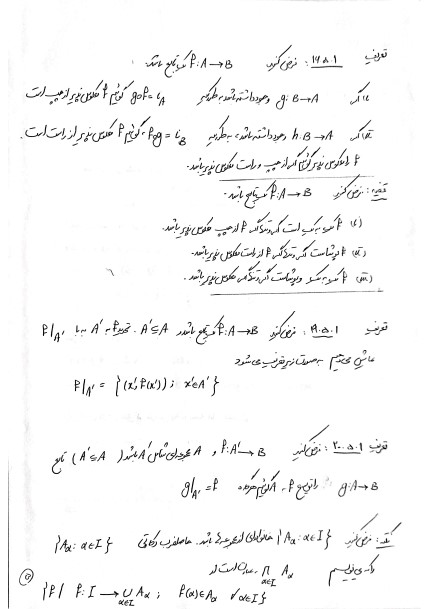 تعریف ۱۶.۵.۱ : فرض کنید f: A → B یک تابع باشد.
(i) اگر g: B → A وجود داشته باشد به طوریکه gof = i_A گوئیم f معکوس پذیر از چپ است
(ii) اگر h: B → A وجود داشته باشد، به طوریکه foh = i_B، گوئیم f معکوس پذیر از راست است.
f را معکوس پذیر گوئیم اگر از چپ و راست معکوس پذیر باشد.
قضیه : فرض کنید f: A → B یک تابع باشد.
(i) f یک به یک است اگر و تنها اگر f از چپ معکوس پذیر باشد.
(ii) f پوشاست اگر و تنها اگر f از راست معکوس پذیر باشد.
(iii) f یک به یک و پوشاست اگر و تنها اگر معکوس پذیر باشد.
تعریف ۱۹.۵.۱ : فرض کنید f: A → B یک تابع باشد و A' ⊆ A. تحدید f به A' که با f|A'
نمایش می‌دهیم به صورت زیر تعریف می‌شود
f|A' = {(x', f(x')) ; x' ∈ A'}
تعریف ۲۰.۵.۱ : فرض کنید f: A' → B و A مجموعه‌ای شامل A' باشد (A' ⊆ A) تابع
g: A → B را توسیع f به A گوئیم هرگاه g|A' = f
فرض کنید {Aα : α∈I} خانواده‌ای از مجموعه‌ها باشد. حاصلضرب دکارتی {Aα : α∈I}
که می‌نویسیم ∏ Aα α∈I عبارت است از
{f | f: I → ∪ Aα α∈I ; f(α)∈Aα ∀α∈I}